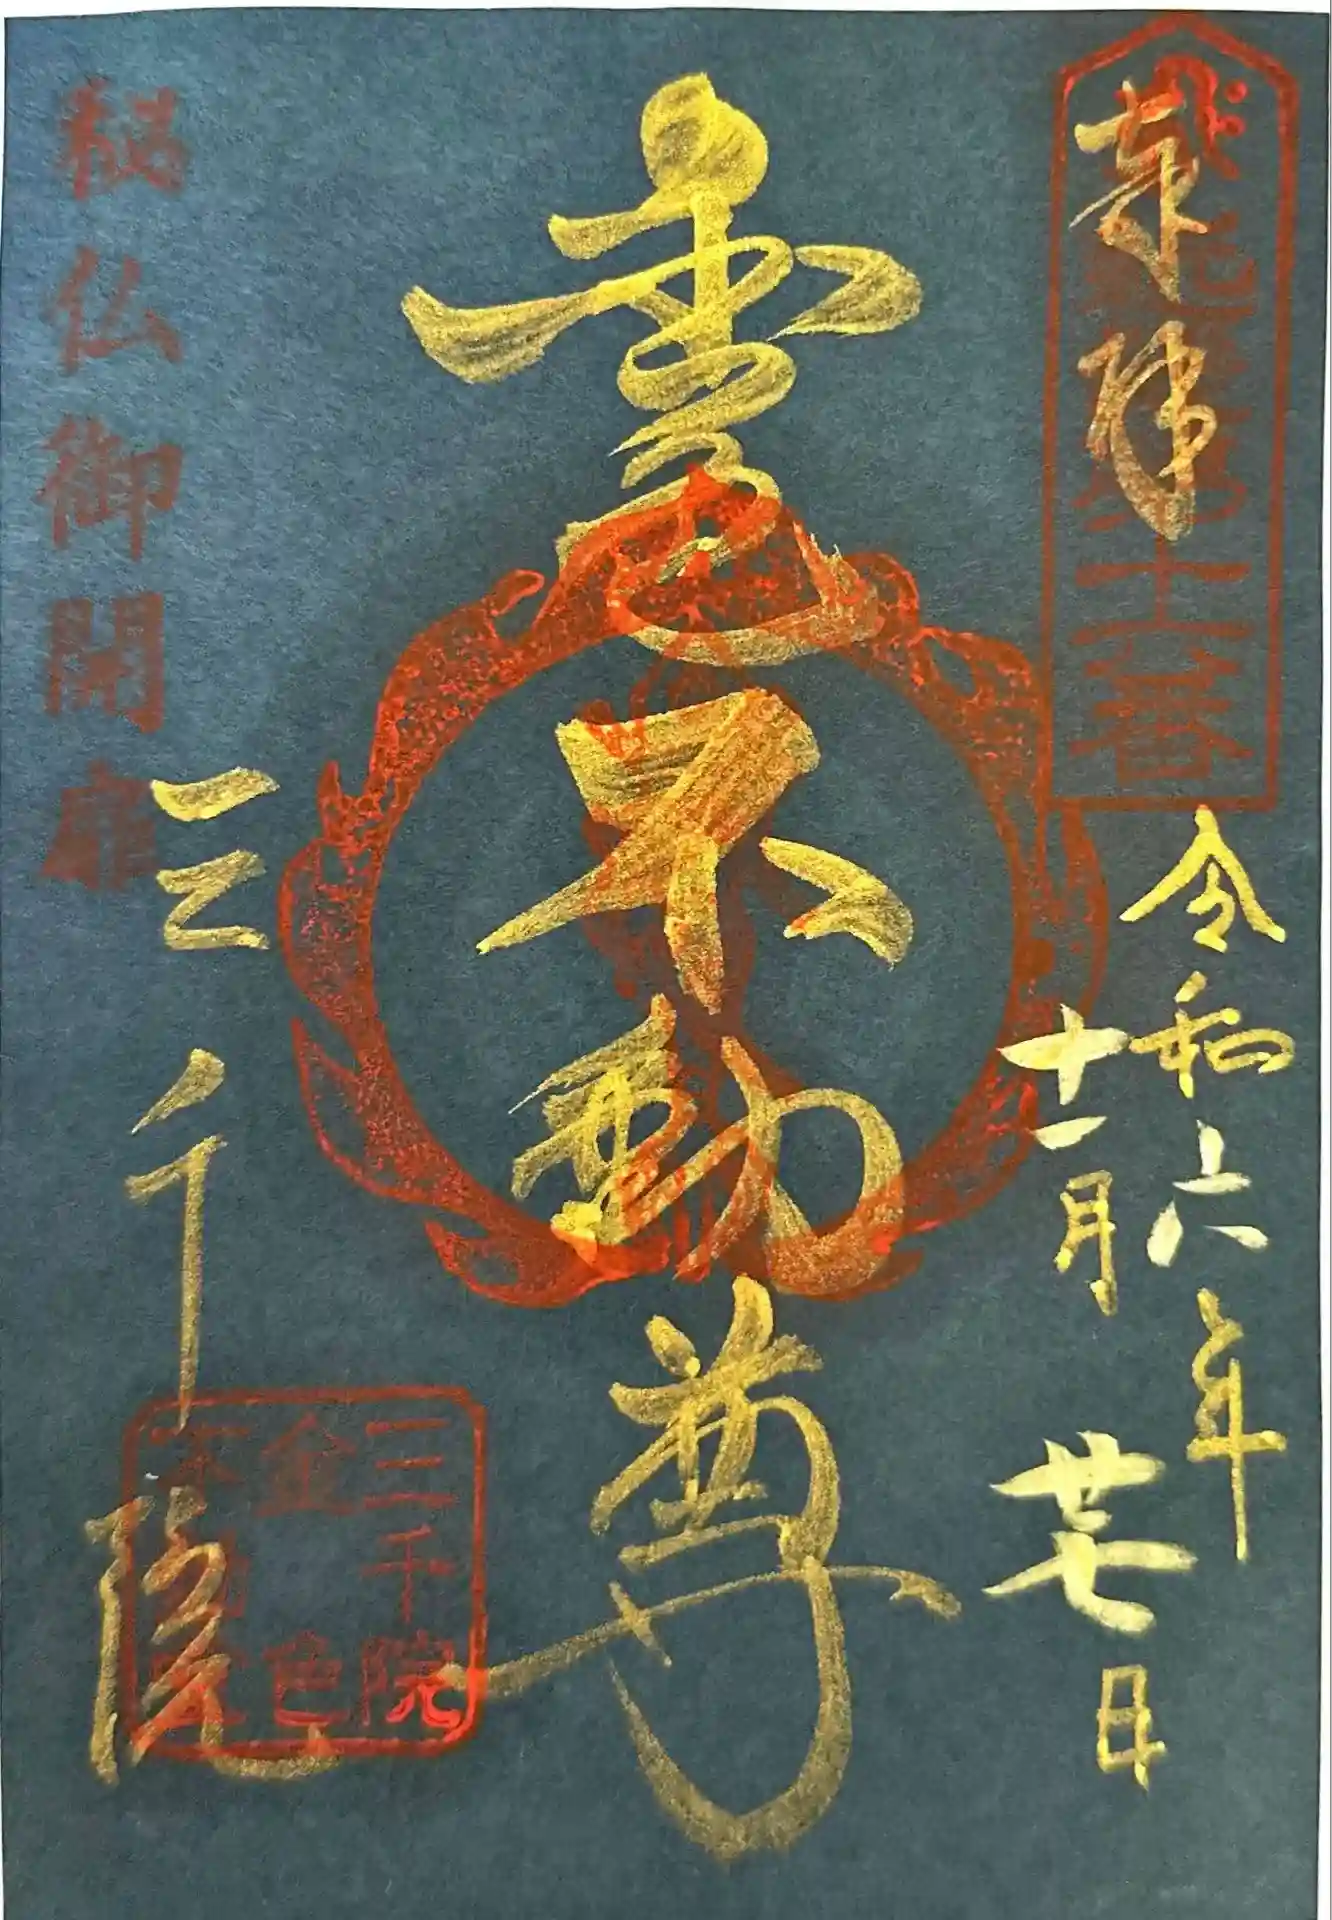 奉拝
令和六年
十一月廿七日
金色不動尊
秘仏御開扉
三千院
三千院
金色
不動